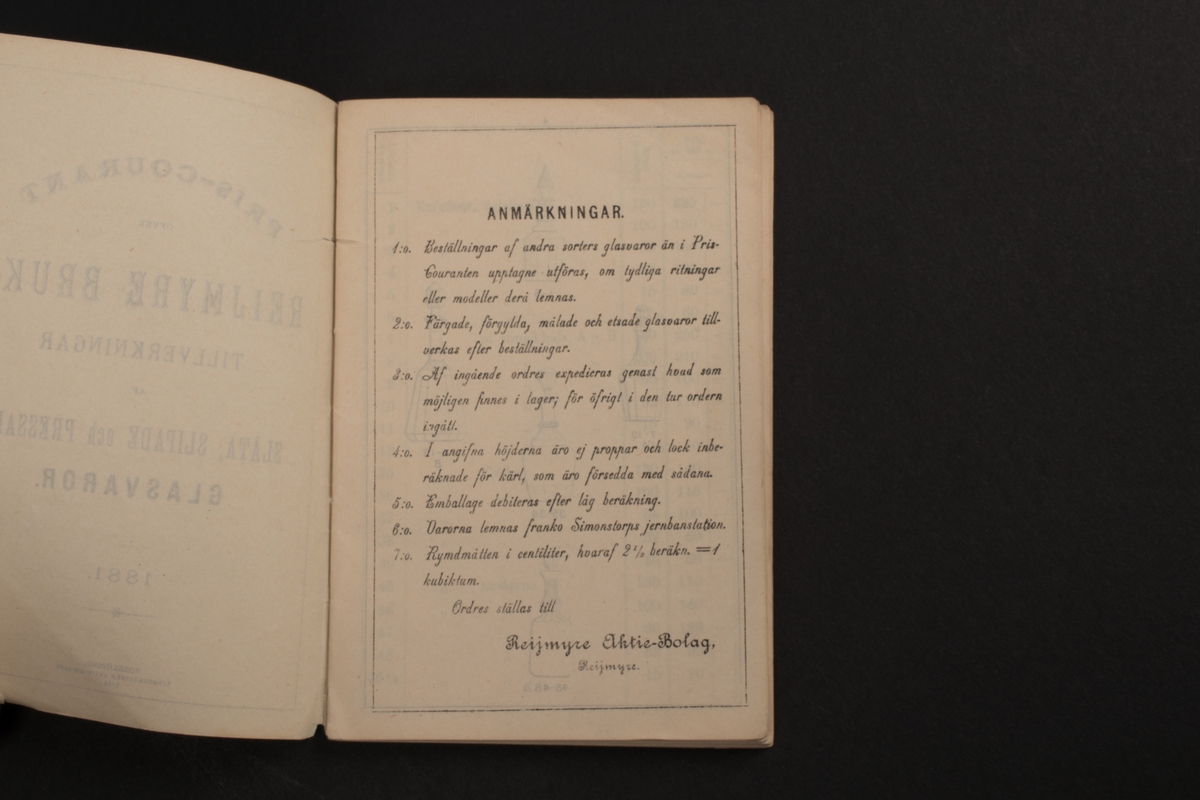 PRIS-COURANT
ÖFVER
REIJMYRE BRUKS
TILLVERKNINGAR
AF
SLÄTA, SLIPADE och PRESSADE
GLASVAROR.
1881.
ANMÄRKNINGAR.
1:o. Beställningar af andra sorters glasvaror än i Pris-
Couranten upptagne utföras, om tydliga ritningar
eller modeller derå lemnas.
2:o. Färgade, förgylda, målade och etsade glasvaror till-
verkas efter beställningar.
3:o. Af ingående ordres expedieras genast hvad som
möjligen finnes i lager; för öfrigt i den tur ordern
ingått.
4:o. I angifna höjderna äro ej proppar och lock inbe-
räknade för kärl, som äro försedda med sådana.
5:o. Emballage debiteras efter låg beräkning.
6:o. Varorna lemnas franko Simonstorps jernbanstation.
7:o. Rymdmåtten i centiliter, hvaraf 2½ beräkn. = 1
kubiktum.
Ordres ställas till
Reijmyre Aktie-Bolag,
Reijmyre.